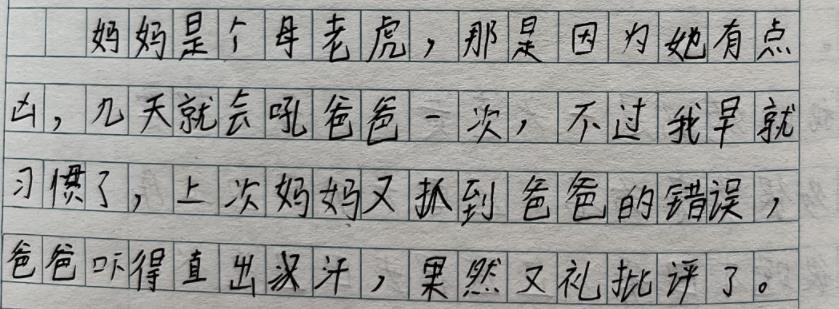 妈妈是个母老虎，那是因为她有点
凶，几天就会吼爸爸一次，不过我早就
习惯了，上次妈妈又抓到爸爸的错误，
爸爸吓得直出汗，果然又批评了。